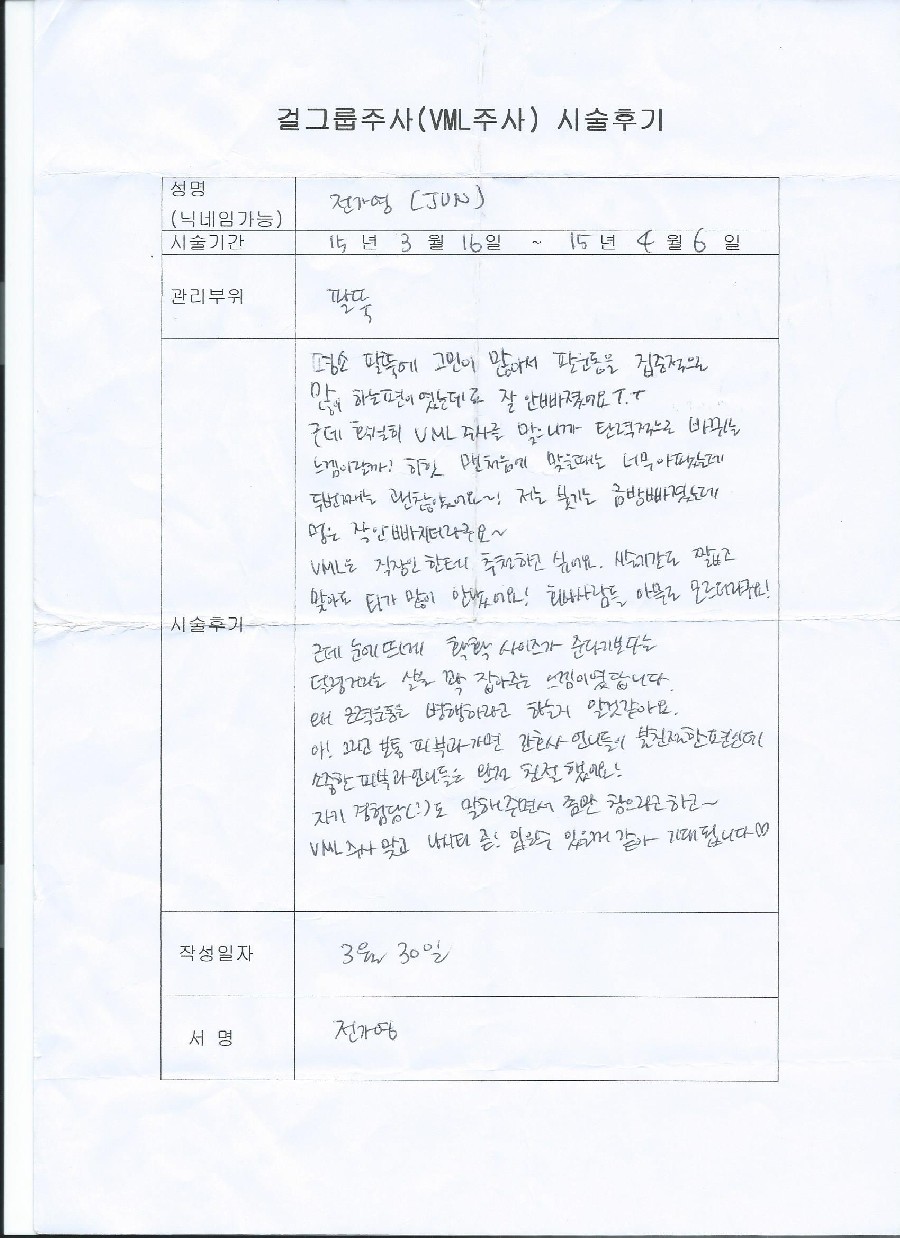 걸그룹주사(VML주사) 시술후기
성명
(닉네임가능)
전가영 (JUN)
시술기간 15 년 3 월 16 일 ~ 15 년 4 월 6 일
관리부위 팔뚝
시술후기
평소 팔뚝에 고민이 많아서 팔운동을 집중적으로
많이 하는편이였는데도 잘 안빠졌어요 T.T
근데 확실히 VML주사를 맞으니까 탄력적으로 바뀌는
느낌이랄까? 히힛 맨처음에 맞을때는 너무아팠는데
두번째는 괜찮았어요~! 저는 붓기는 금방빠졌는데
멍은 잘안빠지더라구요~
VML은 직장인한테 추천하고 싶어요. 시술기간도 짧고
맞아도 티가 많이 안났어요! 회사사람들 아무도 모르더라구요!
근데 눈에뜨이게 확확 사이즈가 준다기보다는
덜렁거리는 살을 꽉 잡아주는 느낌이였답니다.
왜 근력운동을 병행하라고 하는지 알것같아요.
아! 그리고 보통 피부과가면 간호사 언니들이 불친절한편인데
소중한 피부과언니들은 완전 친절했어요!
자기 경험담(!)도 말해주면서 좀만 참으라고하고~
VML주사 맞고 나시티 좀! 입을수 있을거 같아 기대됩니다♡
작성일자 3월 30일
서 명 전가영